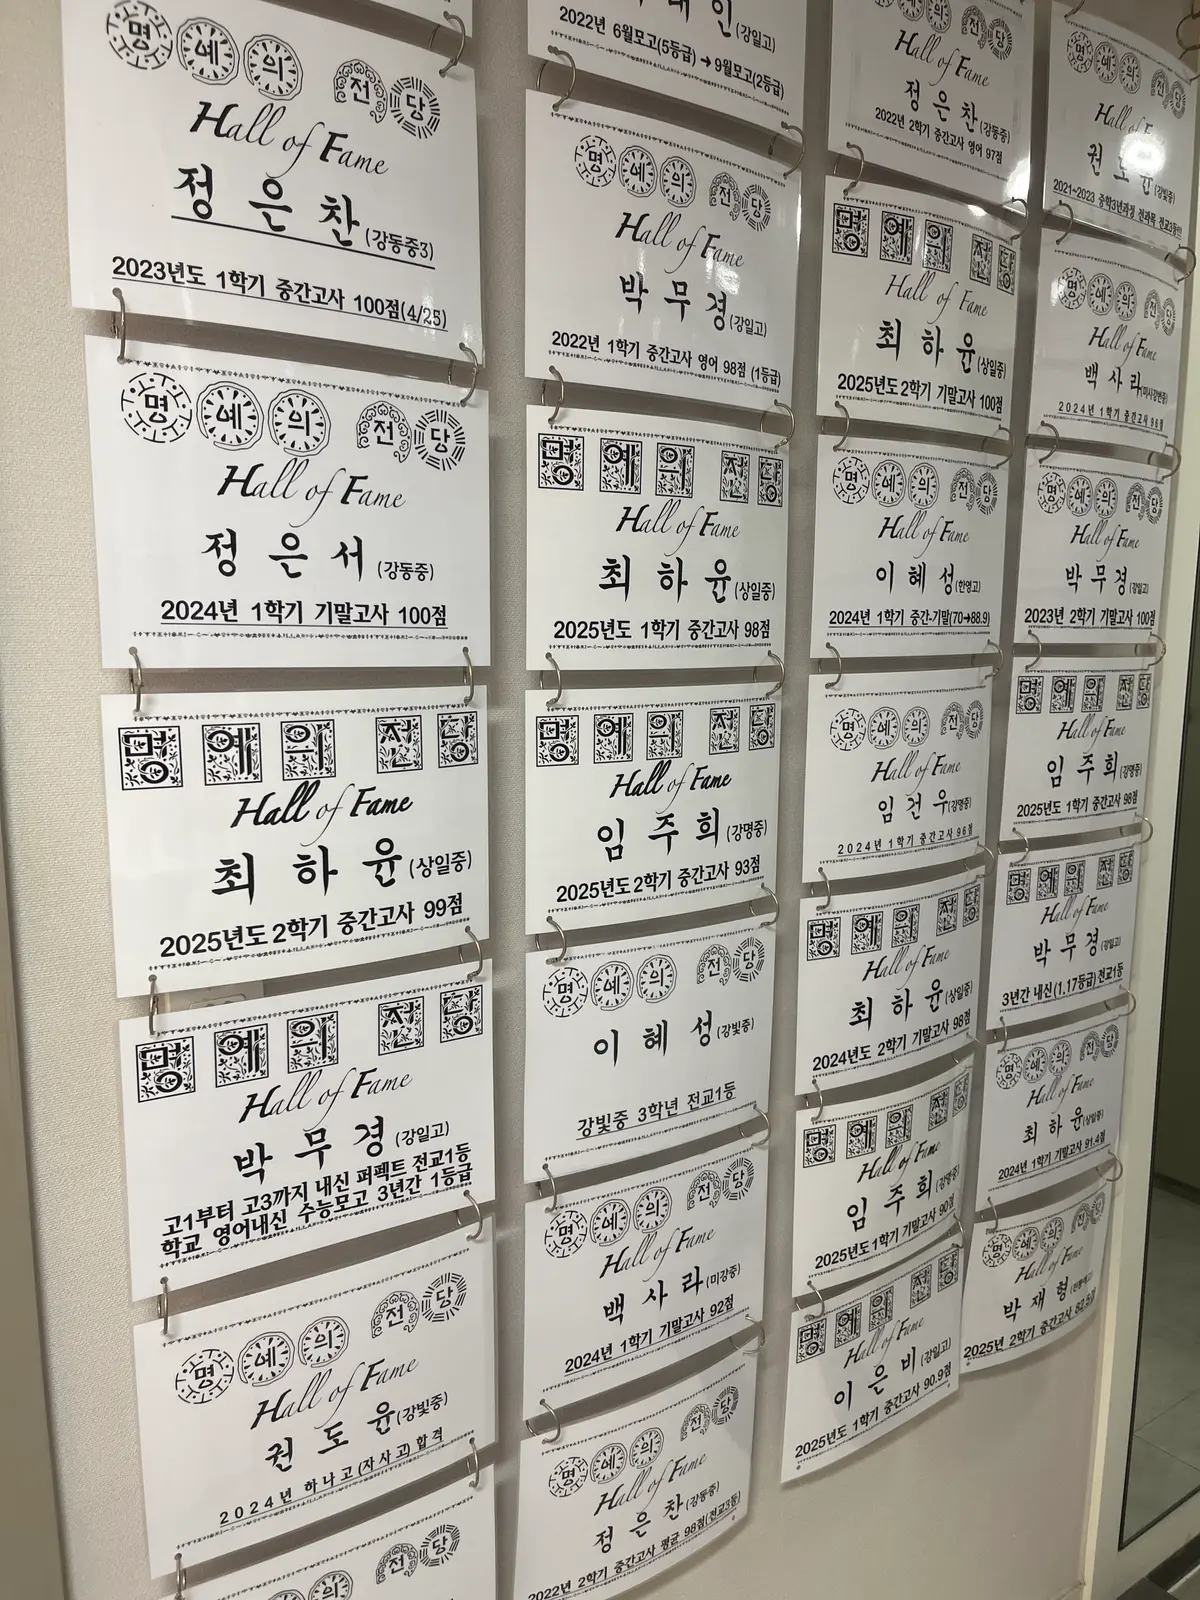 명예의 전당
Hall of Fame
정은찬(강동중3)
2023년도 1학기 중간고사 100점(4/25)
명예의 전당
Hall of Fame
정은서(강동중)
2024년 1학기 기말고사 100점
명예의 전당
Hall of Fame
최하윤(상일중)
2025년도 2학기 중간고사 99점
명예의 전당
Hall of Fame
박무경(강일고)
고1부터 고3까지 내신 퍼펙트 전교1등
학교 영어내신 수능모고 3년간 1등급
명예의 전당
Hall of Fame
권도윤(강빛중)
2024년 하나고(자사고)합격
전당
인(강일고)
2022년 6월모고(5등급)→9월모고(2등급)
명예의 전당
Hall of Fame
박무경(강일고)
2022년 1학기 중간고사 영어 98점 (1등급)
명예의 전당
Hall of Fame
최하윤(상일중)
2025년도 1학기 중간고사 98점
명예의 전당
Hall of Fame
임주희(강명중)
2025년도 2학기 중간고사 93점
명예의 전당
이혜성(강빛중)
강빛중 3학년 전교1등
명예의 전당
Hall of Fame
백사라(미강중)
2024년 1학기 기말고사 92점
명예의 전당
Hall of Fame
정은찬(강동중)
2022년 2학기 중간고사 평균 98점(전교3등)
전당
Hall of Fame
정은찬(강동중)
2022년 2학기 중간고사 영어 97점
명예의 전당
Hall of Fame
최하윤(상일중)
2025년도 2학기 기말고사 100점
명예의 전당
Hall of Fame
이혜성(한영고)
2024년 1학기 중간-기말(70→88.9)
명예의 전당
Hall of Fame
임건우(강명중)
2024년 1학기 중간고사 96점
명예의 전당
Hall of Fame
최하윤(상일중)
2024년도 2학기 기말고사 98점
명예의 전당
Hall of Fame
임주희(강명중)
2025년도 1학기 기말고사 90점
명예의 전당
Hall of Fame
이은비(강일고)
2025년도 1학기 중간고사 90.9점
명예의 전당
Hall of Fame
권도윤(강빛중)
2021~2023 중학3년과정 전과목 전교3등!!!
명예의 전당
Hall of Fame
백사라(미사강변중)
2024년 1학기 중간고사 96점
명예의 전당
Hall of Fame
박무경(강일고)
2023년 2학기 기말고사 100점
명예의 전당
Hall of Fame
임주희(강명중)
2025년도 1학기 중간고사 98점
명예의 전당
Hall of Fame
박무경(강일고)
3년간 내신(1.17등급)전교1등
명예의 전당
Hall of Fame
최하윤(상일중)
2024년 1학기 기말고사 91.4점
명예의 전당
Hall of Fame
박재형
2025년 2학기 중간고사 82.5점